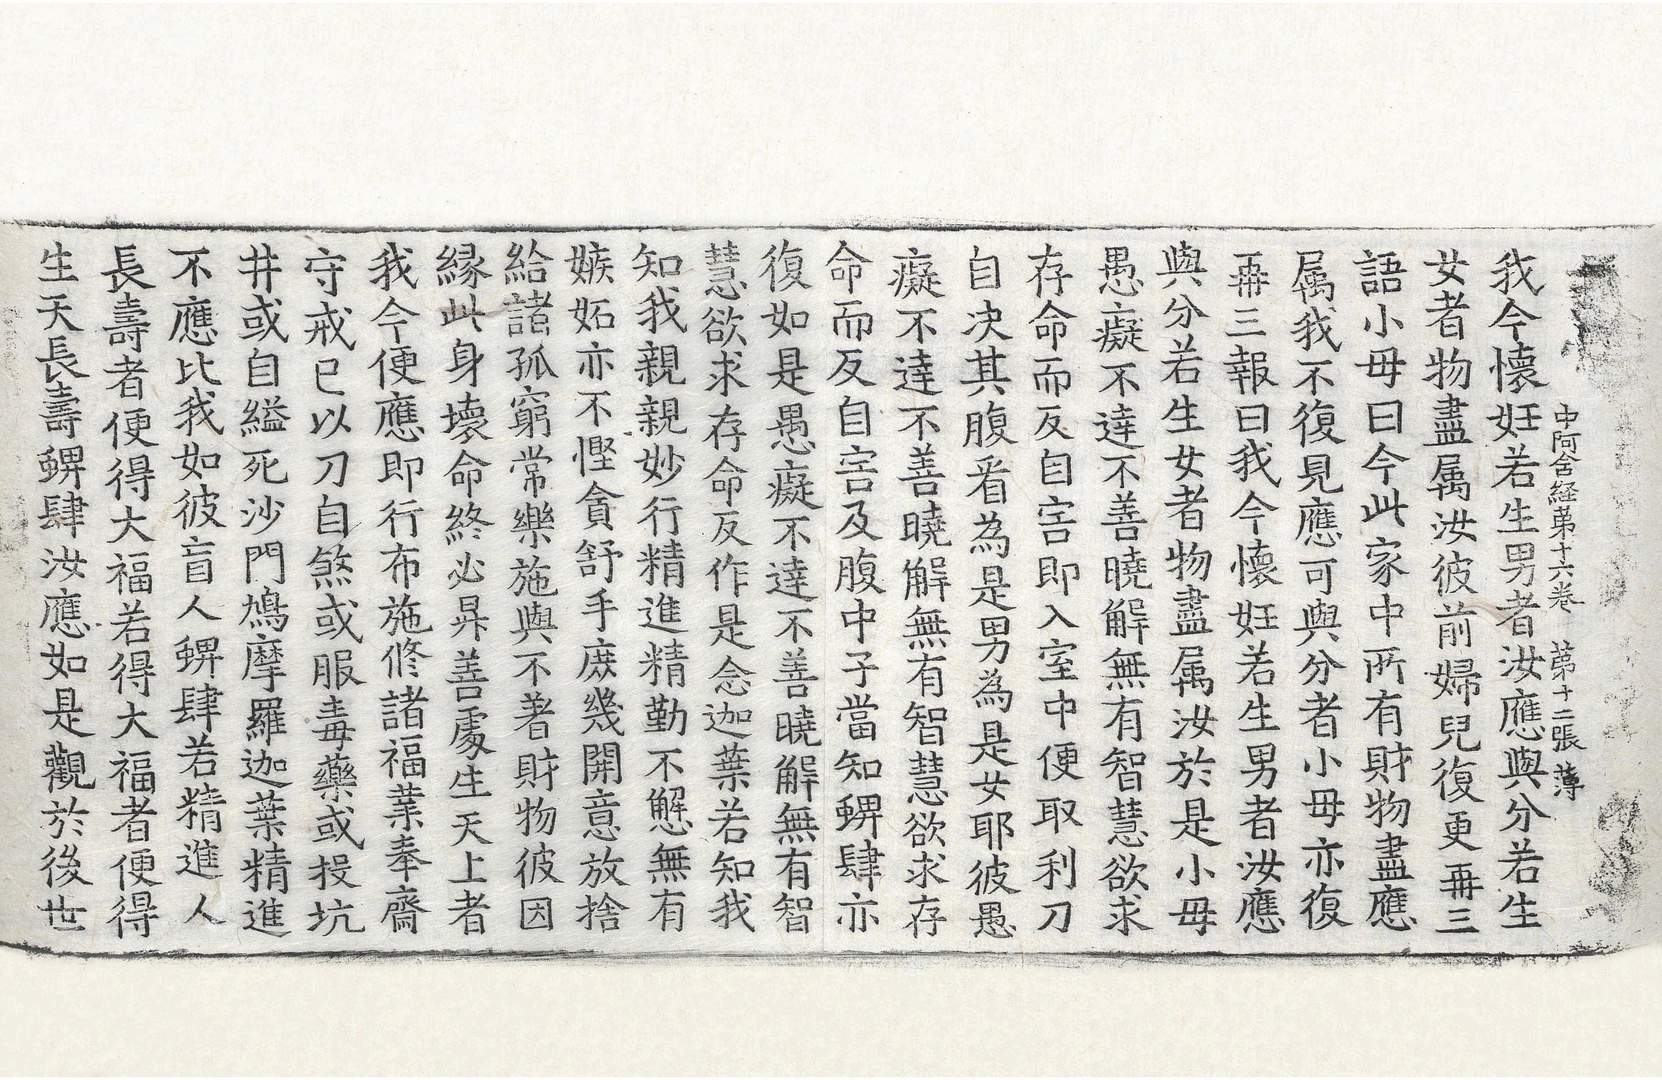 中阿含経苐十六卷 苐十二張 薄
我今懷妊若生男者汝應與分若生
女者物盡属汝彼前婦兒復更再三
語小母曰今此家中所有財物盡應
属我不復見應可與分者小母亦復
再三報曰我今懷妊若生男者汝應
與分若生女者物盡属汝於是小母
愚癡不達不善曉解無有智慧欲求
存命而反自害即入室中便取利刀
自决其腹看為是男為是女耶彼愚
癡不達不善曉解無有智慧欲求存
命而反自害及腹中子當知蜱肆亦
復如是愚癡不達不善曉解無有智
慧欲求存命反作是念迦葉若知我
知我親親妙行精進精勤不懈無有
嫉妬亦不慳貪舒手庶幾開意放捨
給諸孤窮常樂施與不著財物彼因
緣此身壞命終必昇善處生天上者
我今便應即行布施修諸福業奉齋
守戒已以刀自煞或服毒藥或投坑
井或自縊死沙門鳩摩羅迦葉精進
不應比我如彼盲人蜱肆若精進人
長壽者便得大福若得大福者便得
生天長壽蜱肆汝應如是觀於後世